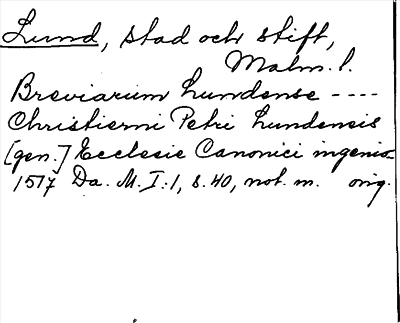 Lund, stad och stift,
Malm. l.
Breviarium Lundense ----
Christierni Petri Lundensis
[gen.] Ecclesie Canonici ingenio-
1517 Da. M. I:1, s. 40, not. m. orig.